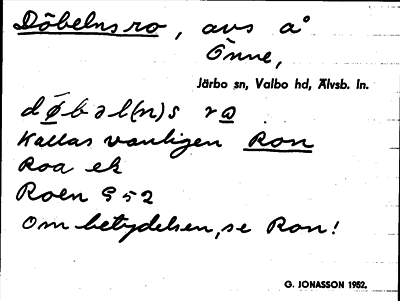 Döbelns ro, avs å
Önne,
Järbo sn, Valbo hd, Älvsb. ln.
døbəl(n)s rω
Kallas vanligen Ron
Roa ek
Roen S 52
Om betydelsen, se Ron!
G. JONASSON 1952.